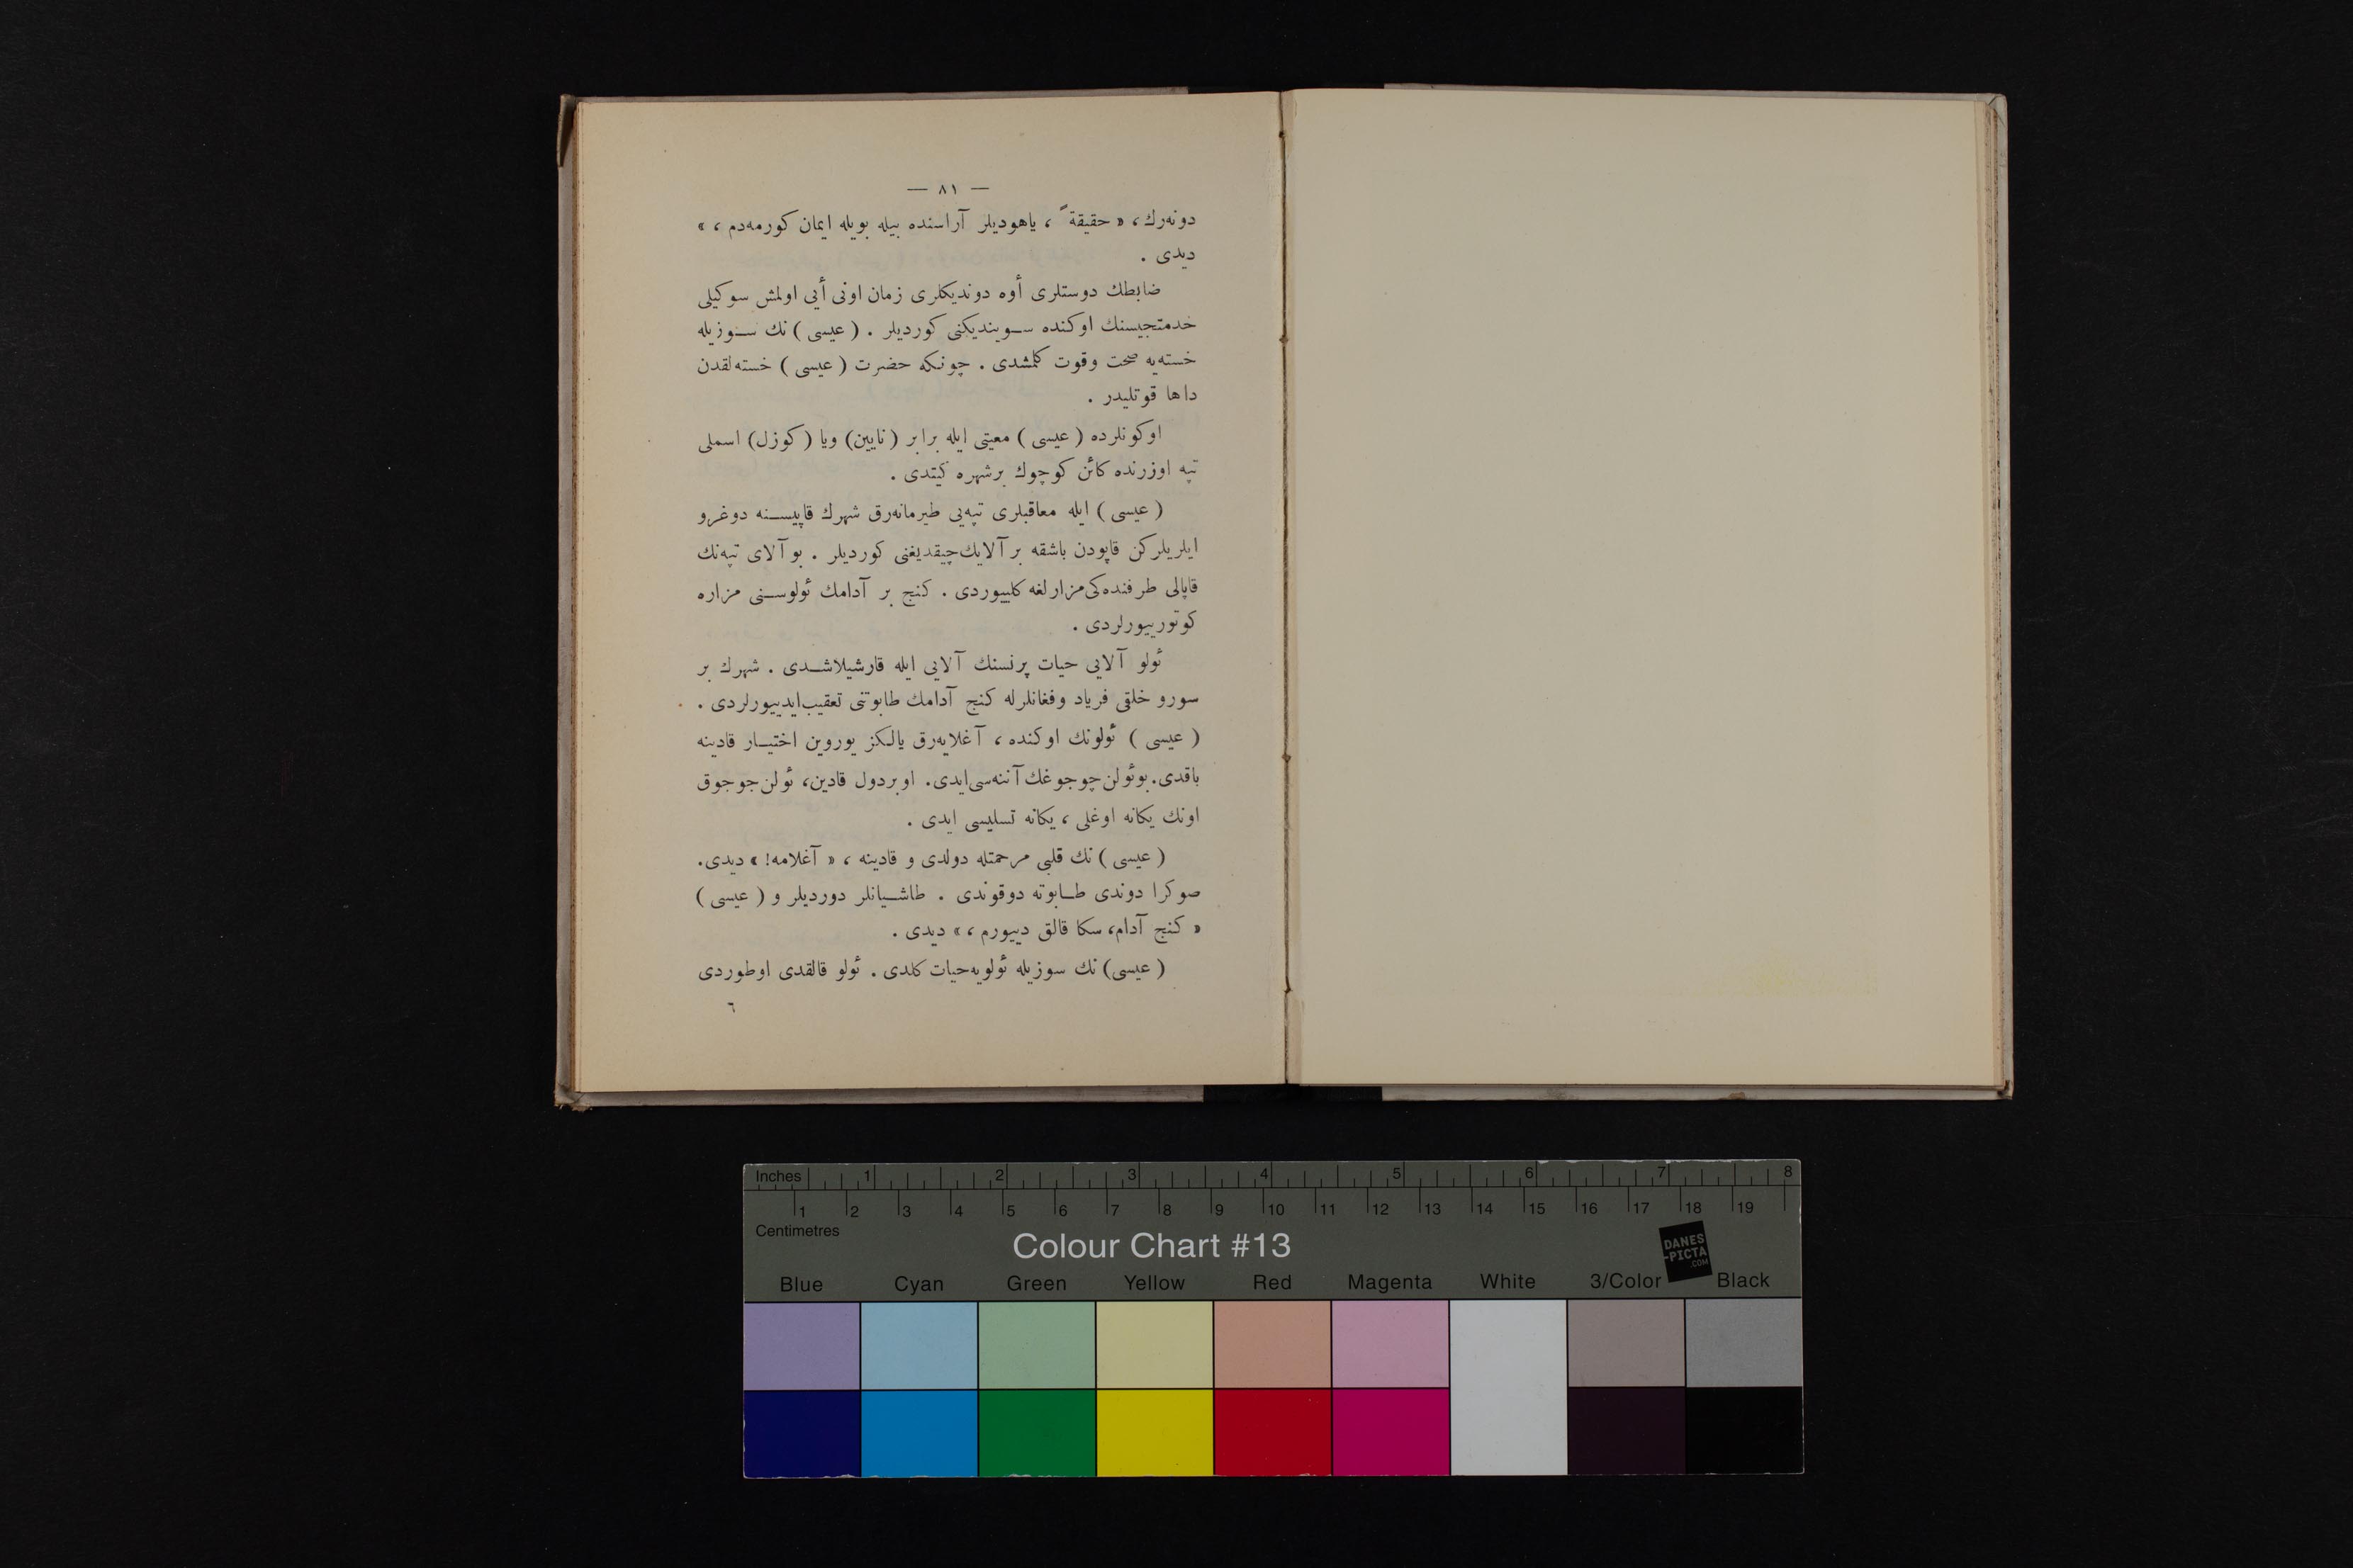 — ٨١ —
دونه‌رك، « حقيقةً ، ياهوديلر آراسنده بيله بويله ايمان كورمه‌دم ، »
ديدى .
ضابطك دوستلرى أوه دونديكلرى زمان اونى أيى اولمش سوكيلى
خدمتجيسنك اوكنده سـوينديكنى كورديلر . ( عيسى ) نك سـوزيله
خسته‌يه صحت وقوت كلمشدى . چونكه حضرت ( عيسى ) خسته‌لقدن
داها قوتليدر .
اوكونلرده ( عيسى ) معيتى ايله برابر ( نايين) ويا ( كوزل) اسملى
تپه اوزرنده كائن كوچوك برشهره كيتدى .
( عيسى ) ايله معاقبلرى تپه‌يى طيرمانه‌رق شهرك قاپيسـنه دوغرو
ايلريلركن قاپودن باشقه بر آلايك‌چيقديغنى كورديلر . بو آلاى تپه‌نك
قاپالى طرفنده‌كى‌مزارلغه كلييوردى . كنج بر آدامك ئولوسـنى مزاره
كوتورييورلردى .
ئولو آلايى حيات پرنسنك آلايى ايله قارشيلاشـدى . شهرك بر
سورو خلقى فرياد وفغانلرله كنج آدامك طابوتنى تعقيب‌ايدييورلردى .
( عيسى ) ئولونك اوكنده ، آغلايه‌رق يالكز يوروين اختيـار قادينه
باقدى. بوئولن‌چوجوغك آننه‌سى‌ايدى. اوبردول قادين، ئولن‌جوجوق
اونك يكانه اوغلى ، يكانه تسليسى ايدى .
( عيسى ) نك قلبى مرحمتله دولدى و قادينه ، « آغلامه! » ديدى.
صوكرا دوندى طـابوته دوقوندى . طاشـيانلر دورديلر و ( عيسى )
« كنج آدام، سكا قالق دييورم ، » ديدى .
( عيسى) نك سوزيله ئولويه‌حيات كلدى . ئولو قالقدى اوطوردى
٦
Inches 1 2 3 4 5 6 7 8
1 2 3 4 5 6 7 8 9 10 11 12 13 14 15 16 17 18 19
Centimetres
Colour Chart #13
DANES
-PICTA
.COM
Blue Cyan Green Yellow Red Magenta White 3/Color Black